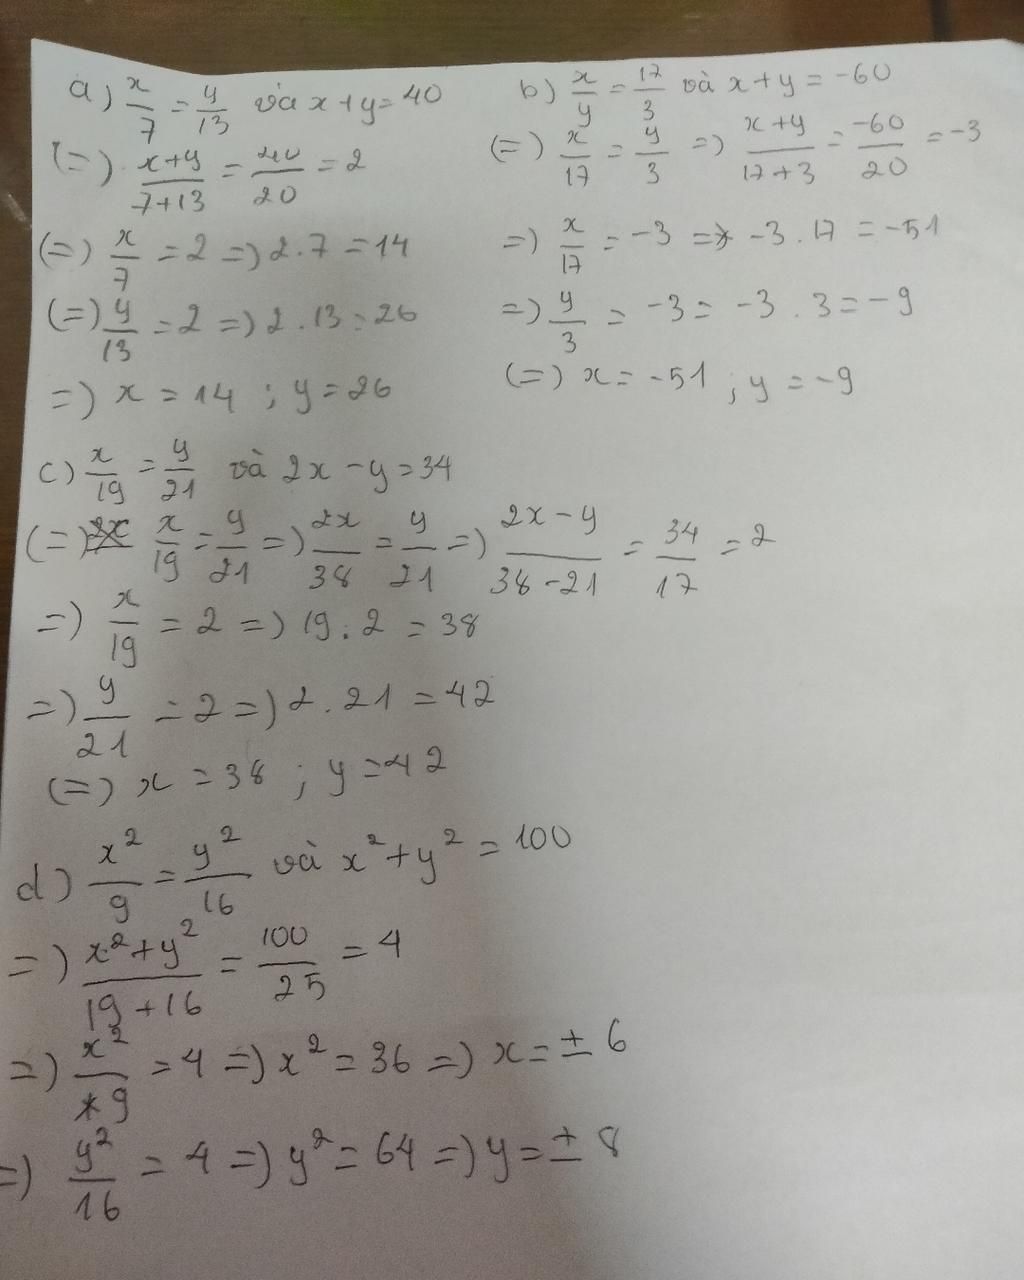 a) x/7 = y/13 và x+y=40
(=) x+y/7+13 = 40/20 = 2
(=) x/7 = 2 =) 2.7 = 14
(=) y/13 = 2 =) 2.13 = 26
=) x = 14 ; y = 26
b) x/y = 17/3 và x+y = -60
(=) x/17 = y/3 =) x+y/17+3 = -60/20 = -3
=) x/17 = -3 =) -3.17 = -51
=) y/3 = -3 = -3.3 = -9
(=) x = -51 ; y = -9
c) x/19 = y/21 và 2x-y=34
(=) x/19 = y/21 =) 2x/38 = y/21 =) 2x-y/38-21 = 34/17 = 2
=) x/19 = 2 =) 19.2 = 38
=) y/21 = 2 =) 2.21 = 42
(=) x = 38 ; y = 42
d) x²/9 = y²/16 và x²+y² = 100
=) x²+y²/19+16 = 100/25 = 4
=) x²/9 = 4 =) x² = 36 =) x = ± 6
=) y²/16 = 4 =) y² = 64 =) y = ± 8